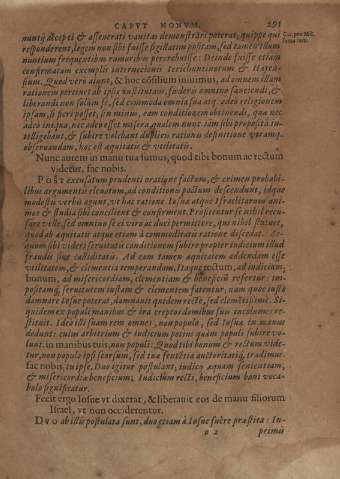 CAPVT NONVM. 291
nuntij accepti & asseuerati vanitas demonstrari poterat, quippe qui
responderent, legem non sibi fuisse sigillatim positam, sed tamen illum
nuntium frequentibus rumoribus percrebuisse: Deinde fuisse etiam
confirmatum exemplis internecionis Ierichuntinorum & Haita-
rum. Quod vero aiunt, & hoc consilium inimus, ad omnem illam
rationem pertinet ab ipsis institutam, foederis omnino sanciendi, &
liberandi non solum se, sed commoda omnia sua atq. adeo religionem
ipsam, si fieri posset, sin minus, eam conditionem obtinendi, quae nec
adeo iniqua, nec adeo esset misera qualem nunc iam sibi proposita in-
telligebant, & subire volebant duplicis rationis definitione vtramq.
obseruandam, hoc est aequitatis & vtilitatis.
Nunc autem in manu tua sumus, quod tibi bonum ac rectum
videtur, fac nobis.
POST excusatum prudenti oratione factum, & crimen probabili-
libus argumentis eleuatum, ad conditionis pactum descendunt, idque
modestis verbis agunt, vt hac ratione Iosua atque Israelitarum ani-
mos & studia sibi concilient & confirment. Profitentur se nihil recu-
sare velle, sed omnino fecisse
velle, quod ab aequitate atque etiam à commoditatis ratione discedat.
quam sibi videri seruitutis conditionem subire propter indicium illud
fraudis siue calliditatis. Ad eam tamen aequitatem addendam esse
vtilitatem, & clementia temperandam. Itaque rectum, ad iudicium,
bonum, ad misericordiam, clementiam & beneficia refertur: im-
positamq. seruitutem iustam & clementem fatentur, nam quos iusto
damnare Iosue poterat, damnauit quidem recte, sed clementissime. Si-
quidem ex populi manibus & ira ereptos domibus suis incolumes re-
stituit. Ideo illi suam rem omnem, non populo, sed Iosua in manus
dedunt: cuius arbitrium & iudicium potius quam populi subire vo-
lunt. in manibus tuis, non populi: Quod tibi bonum & rectum vide-
tur, non populo ipsi sensum, sed tua sententia auctoritatisq. tradimur.
fac nobis, tu ipse. Duo igitur postulant, iudicij aequam sententiam,
& misericordia beneficium, Iudicium recti, beneficium boni voca-
bulo significatur.
Fecit ergo Iosue vt dixerat, & liberauit eos de manu filiorum
Israel, vt non occiderentur.
DVO ab illis postulata sunt, duo etiam à Iosue fuêre praestita: In-
o 2 primis